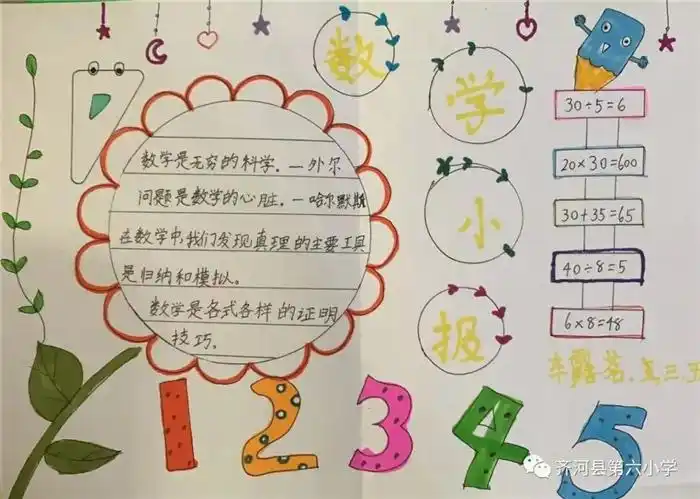 数
学
小
报
数学是无穷的科学。—外尔
问题是数学的心脏。—哈尔默斯
在数学中,我们发现真理的主要工具
是归纳和模拟。
数学是各式各样的证明
技巧。
30÷5=6
20×30=600
30+35=65
40÷8=5
6×8=48
三
1 2 3 4 5
齐河县第六小学